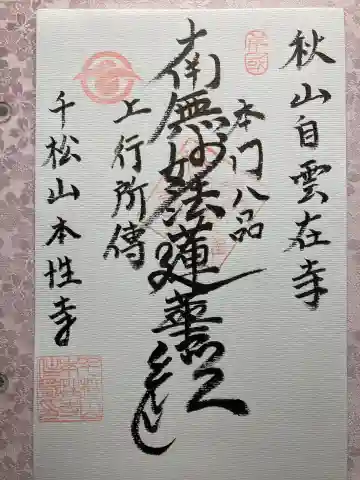 秋山自雲在寺
本門八品
南無妙法蓮華経
上行所傳
千松山本性寺